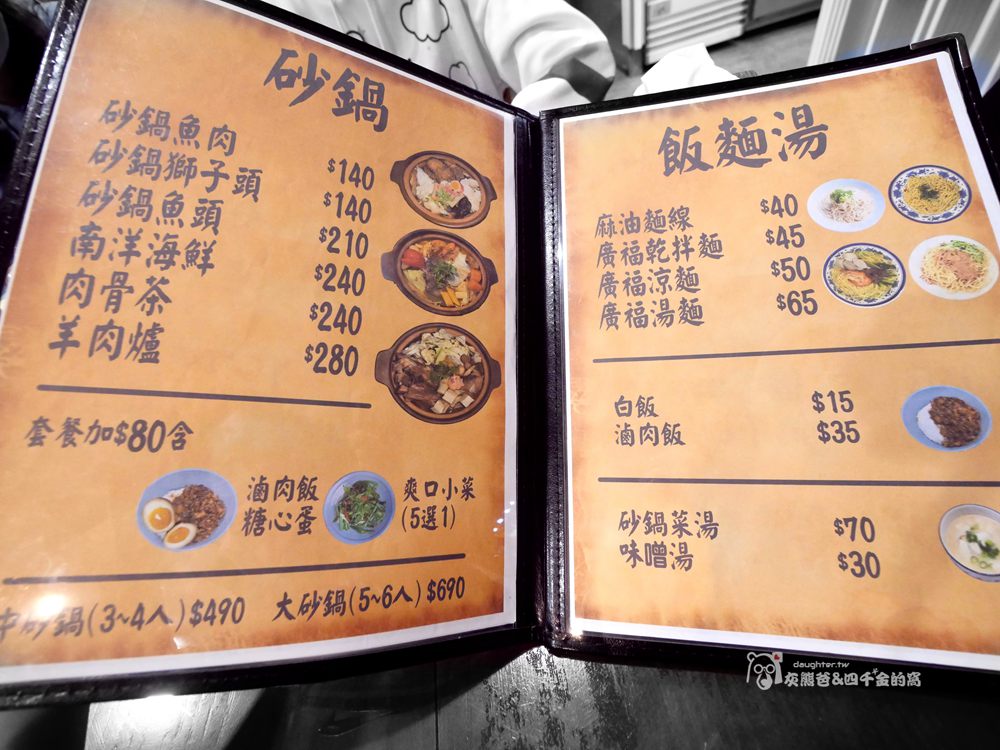 砂鍋
砂鍋魚肉 $140
砂鍋獅子頭 $140
砂鍋魚頭 $210
南洋海鮮 $240
肉骨茶 $240
羊肉爐 $280
套餐加$80含
滷肉飯
糖心蛋
爽口小菜
(5選1)
中砂鍋(3~4人)$490 大砂鍋(5~6人)$690
飯麵湯
麻油麵線 $40
廣福乾拌麵 $45
廣福涼麵 $50
廣福湯麵 $65
白飯 $15
滷肉飯 $35
砂鍋菜湯 $70
味噌湯 $30
daughter.tw
灰熊爸&四千金的窩